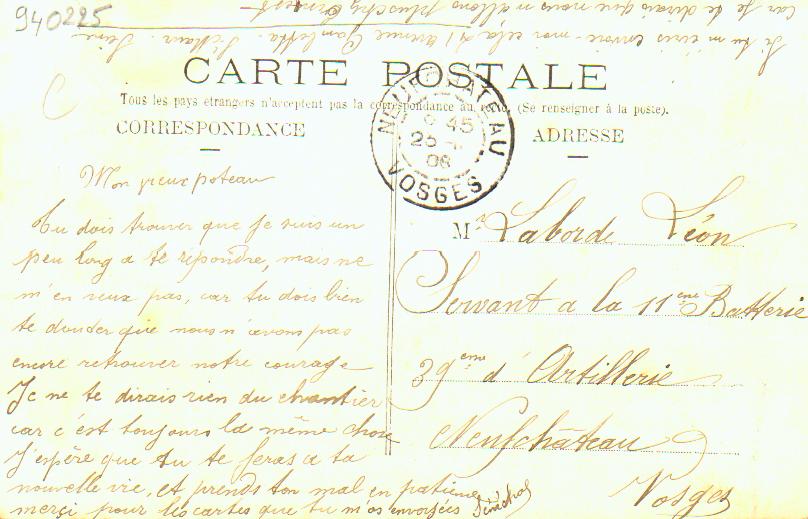 940225
Si tu m'écris envoie-moi cela 41 Avenue Gambetta. St Maur. Seine
car je te dirais que nous n'allons plus chez
CARTE POSTALE
Tous les pays étrangers n'acceptent pas la correspondance au recto. (Se renseigner à la poste).
CORRESPONDANCE
ADRESSE
NEUFCHATEAU
45
25
08
VOSGES
Mon vieux poteau
Tu dois trouver que je suis un
peu long a te répondre, mais ne
m'en veux pas, car tu dois bien
te douter que nous n'avons pas
encore retrouver notre courage
Je ne te dirais rien du chantier
car c'est toujours la même chose
J'espère que tu te feras a ta
nouvelle vie, et prends ton mal en patience
merçi pour les cartes que tu m'as envoyées Sénéchal
Mr Laborde Léon
Servant a la 11ème Batterie
39ème d'Artillerie
Neufchâteau
Vosges